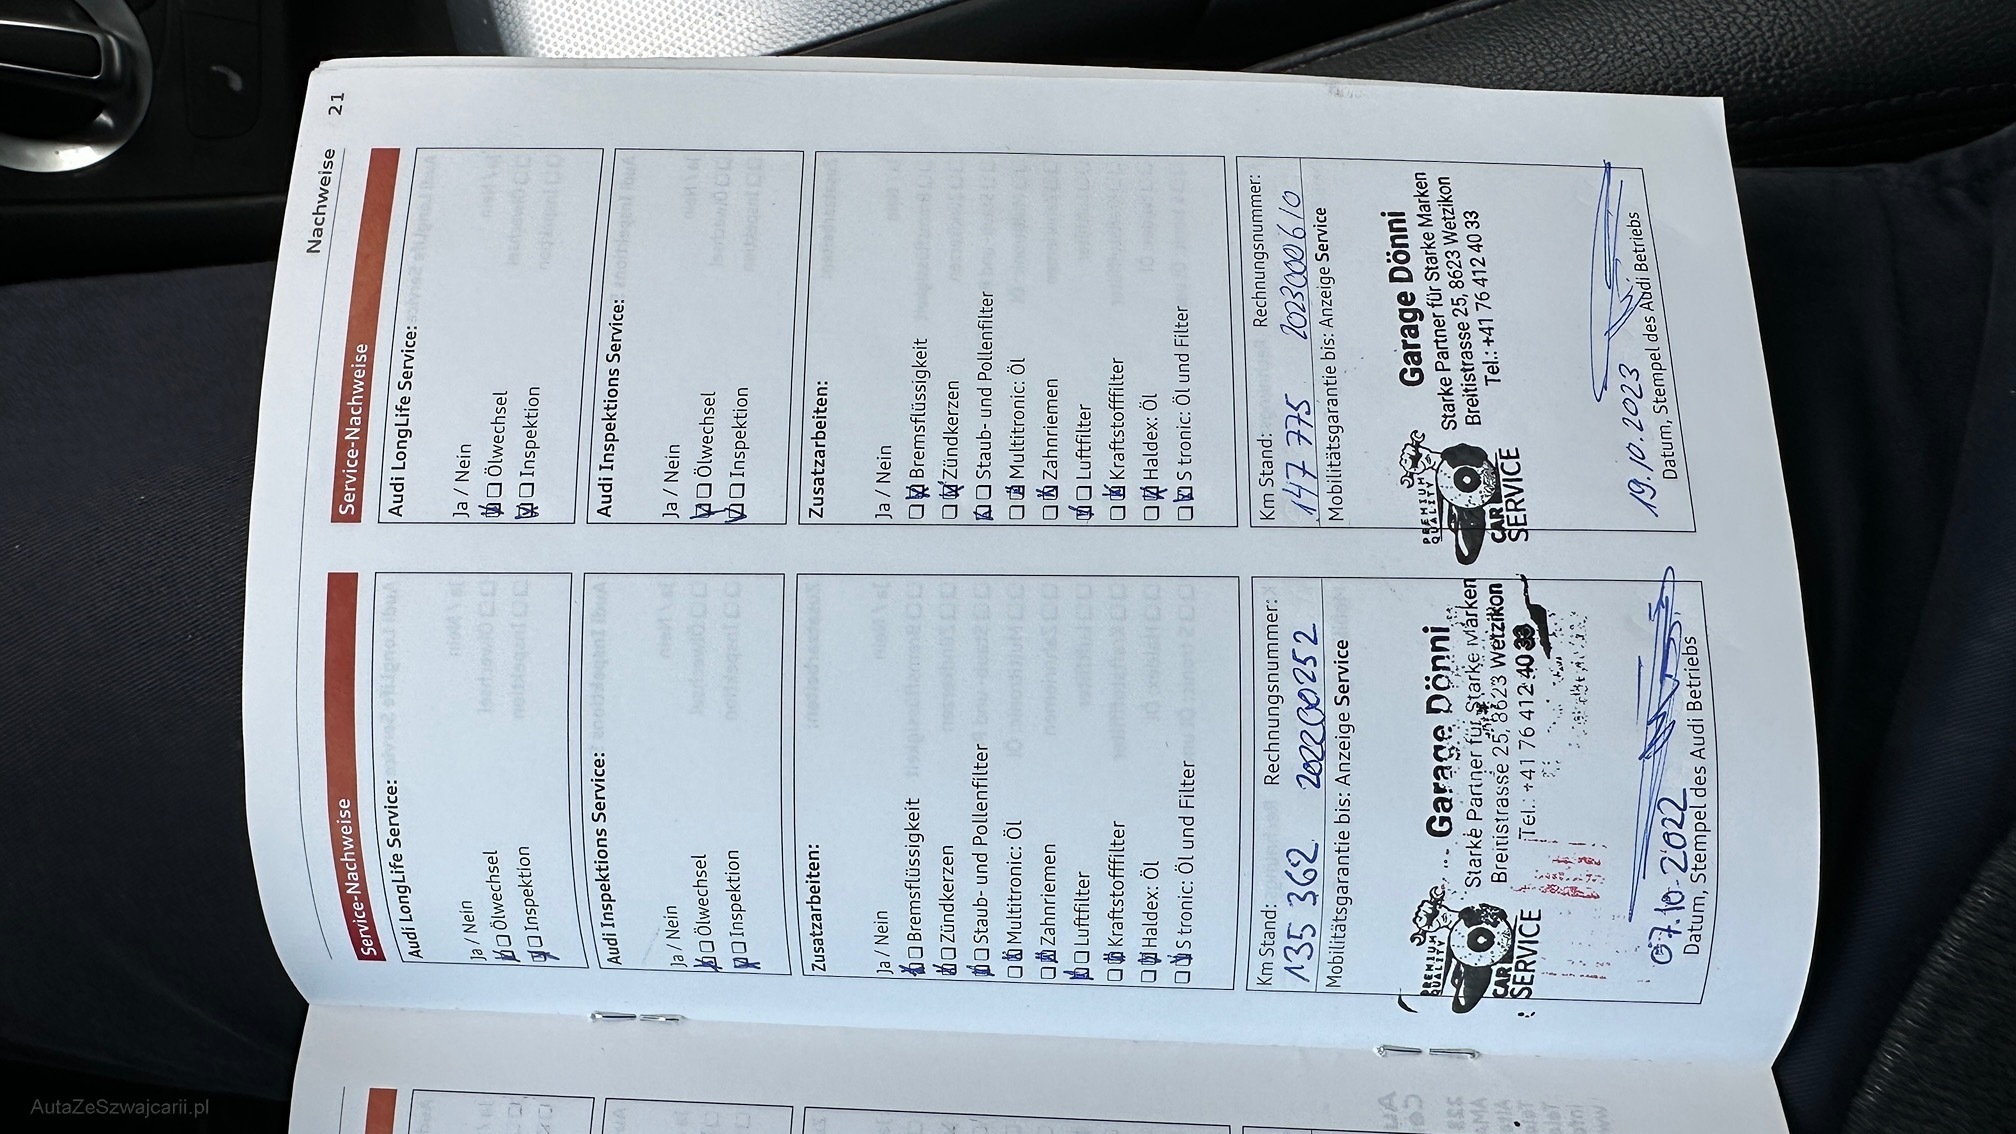 Nachweise 21
Service-Nachweise
Audi LongLife Service:
Ja / Nein
Ölwechsel
Inspektion
Audi Inspektions Service:
Ja / Nein
Ölwechsel
Inspektion
Zusatzarbeiten:
Ja / Nein
Bremsflüssigkeit
Zündkerzen
Staub- und Pollenfilter
Multitronic: Öl
Zahnriemen
Luftfilter
Kraftstofffilter
Haldex: Öl
S tronic: Öl und Filter
Km Stand: Rechnungsnummer:
135 362 202200252
Mobilitätsgarantie bis: Anzeige Service
PREMIUM
QUALITY
CAR
SERVICE
Garage Dönni
Starke Partner für Starke Marken
Breitistrasse 25, 8623 Wetzikon
Tel.: +41 76 412 40 33
07.10.2022
Datum, Stempel des Audi Betriebs
Service-Nachweise
Audi LongLife Service:
Ja / Nein
Ölwechsel
Inspektion
Audi Inspektions Service:
Ja / Nein
Ölwechsel
Inspektion
Zusatzarbeiten:
Ja / Nein
Bremsflüssigkeit
Zündkerzen
Staub- und Pollenfilter
Multitronic: Öl
Zahnriemen
Luftfilter
Kraftstofffilter
Haldex: Öl
S tronic: Öl und Filter
Km Stand: Rechnungsnummer:
147 775 2023000610
Mobilitätsgarantie bis: Anzeige Service
PREMIUM
QUALITY
CAR
SERVICE
Garage Dönni
Starke Partner für Starke Marken
Breitistrasse 25, 8623 Wetzikon
Tel.: +41 76 412 40 33
19.10.2023
Datum, Stempel des Audi Betriebs
AutaZeSzwajcarii.pl